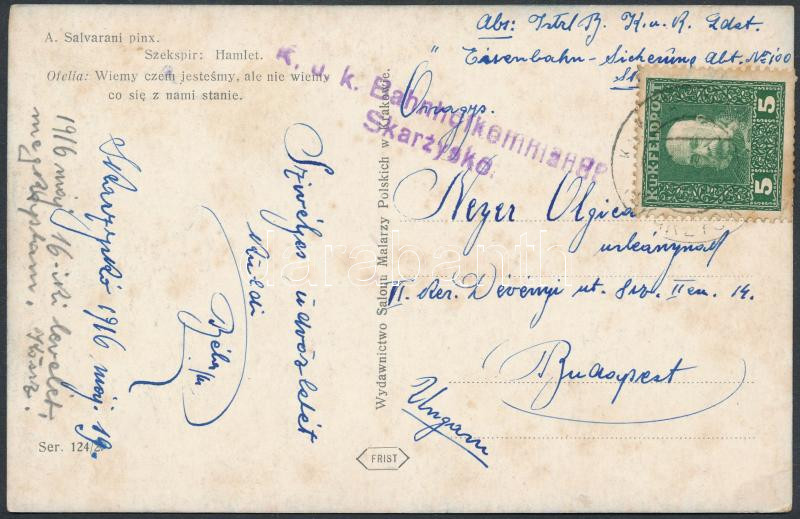 A. Salvarani pinx.
Szekspir: Hamlet.
Ofelia: Wiemy czem jesteśmy, ale nie wiemy
co się z nami stanie.
K. u. k. Bahnhofkommando
Skarżysko.
Abs: B. K. u. K. Ldst.
Eisenbahn-Sicherung Abt. No 100
K.u.K. FELDPOST
5 5
Nagys.
Neyer Olgica
urleánynak
II. ker. Dévényi ut. 14.
Budapest
Ungarn
Wydawnictwo Salonu Malarzy Polskich w Krakowie.
Szivélyes üdvözletét
küldi
Béla
Skarzysko 1916 máj. 19.
1916 máj 16 iki levelet
megkaptam.
Ser. 124/2
FRIST
darabanth